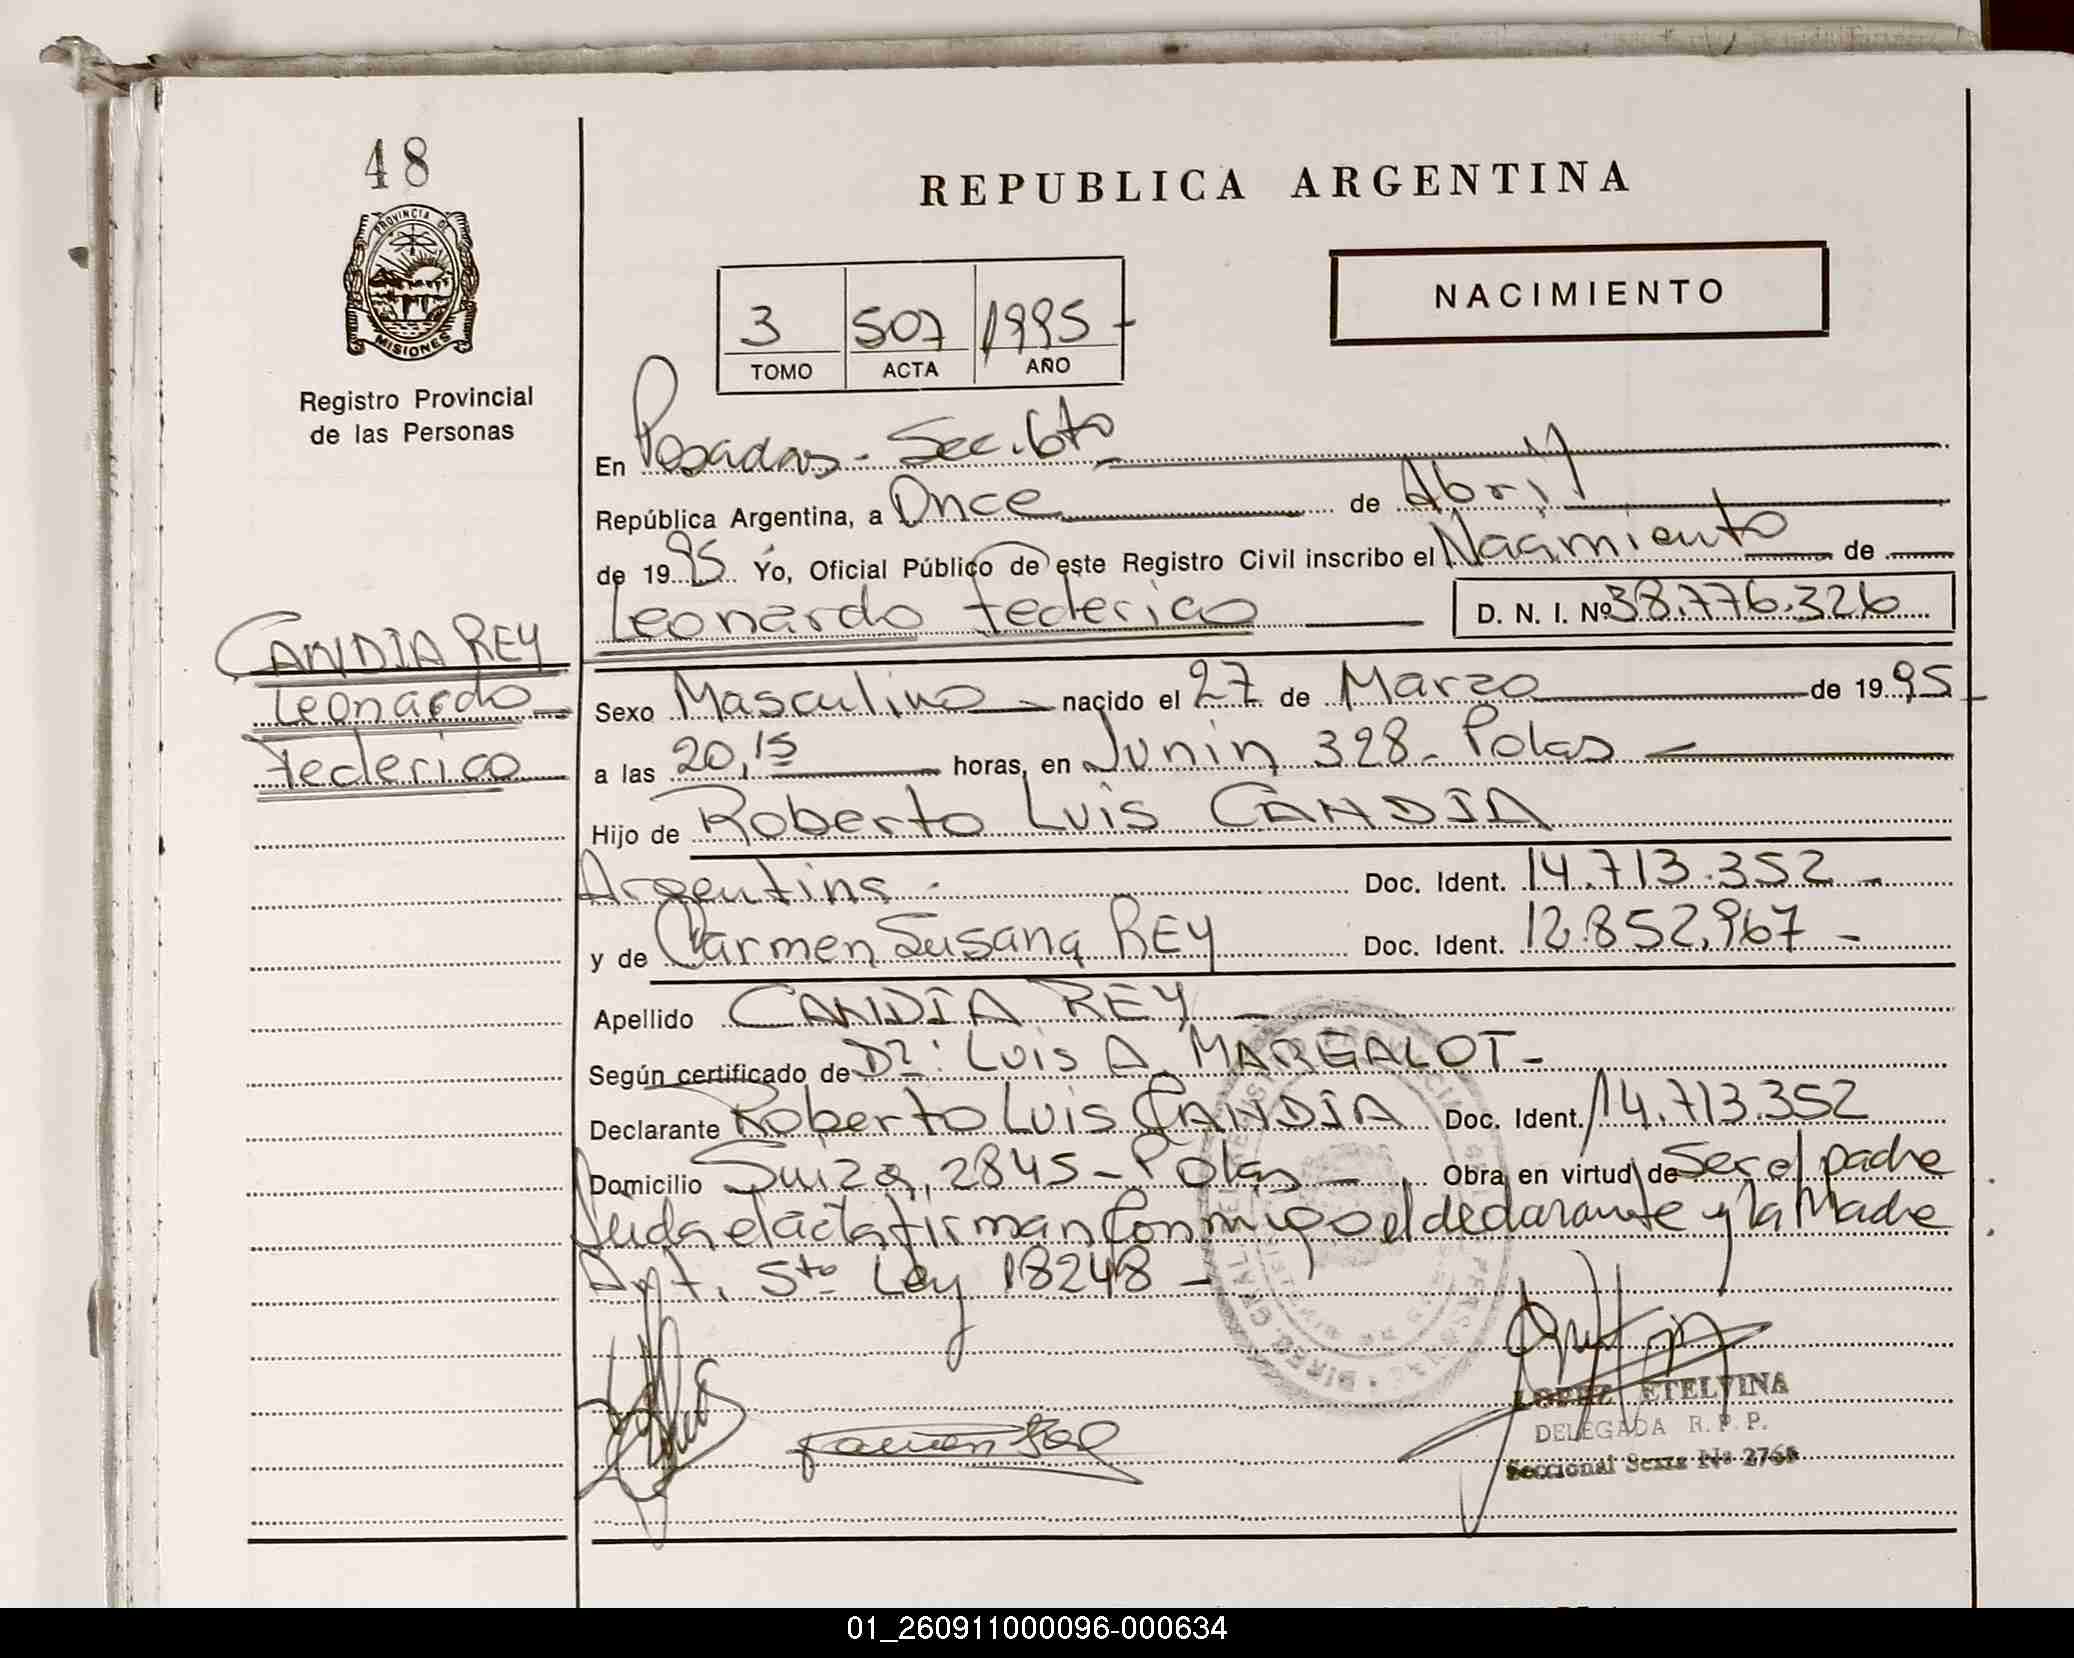 48
PROVINCIA DE
MISIONES
Registro Provincial
de las Personas
REPUBLICA ARGENTINA
NACIMIENTO
3 507 1995-
TOMO ACTA AÑO
En Posadas - Sec. 6ta
República Argentina, a Once de Abril
de 1995 Yo, Oficial Público de este Registro Civil inscribo el Nacimiento de
Leonardo Federico D. N. I. Nº 38.776.326
CANDIA REY
Leonardo
Federico
Sexo Masculino nacido el 27 de Marzo de 1995
a las 20,15 horas, en Junin 328- Pdas
Hijo de Roberto Luis CANDIA
Argentino Doc. Ident. 14.713.352-
y de Carmen Susana REY Doc. Ident. 12.852.967-
Apellido CANDIA REY -
Según certificado de Dr: Luis A. MARGALOT-
Declarante Roberto Luis CANDIA Doc. Ident. 14.713.352
Domicilio Suiza, 2845- Pdas Obra en virtud de Ser el padre
Leida el acta firman Conmigo el declarante y la Madre
Art. 5to Ley 18248 -
LOPEZ ETELVINA
DELEGADA R. P. P.
Seccional Sexta Nº
01_260911000096-000634